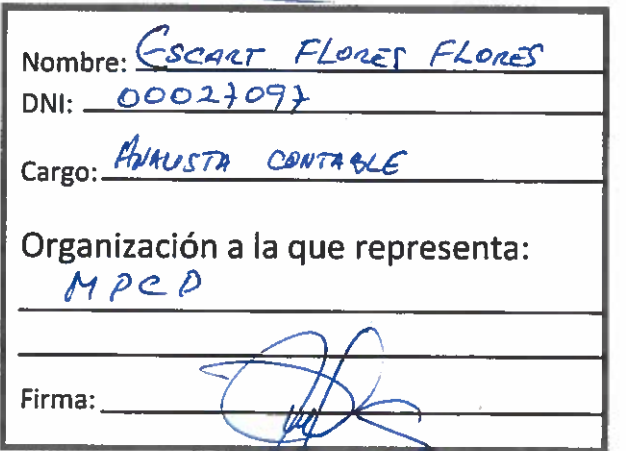 Nombre: Escart Flores Flores
DNI: 00027097
Cargo: Analista Contable
Organización a la que representa:
MPCP
Firma: